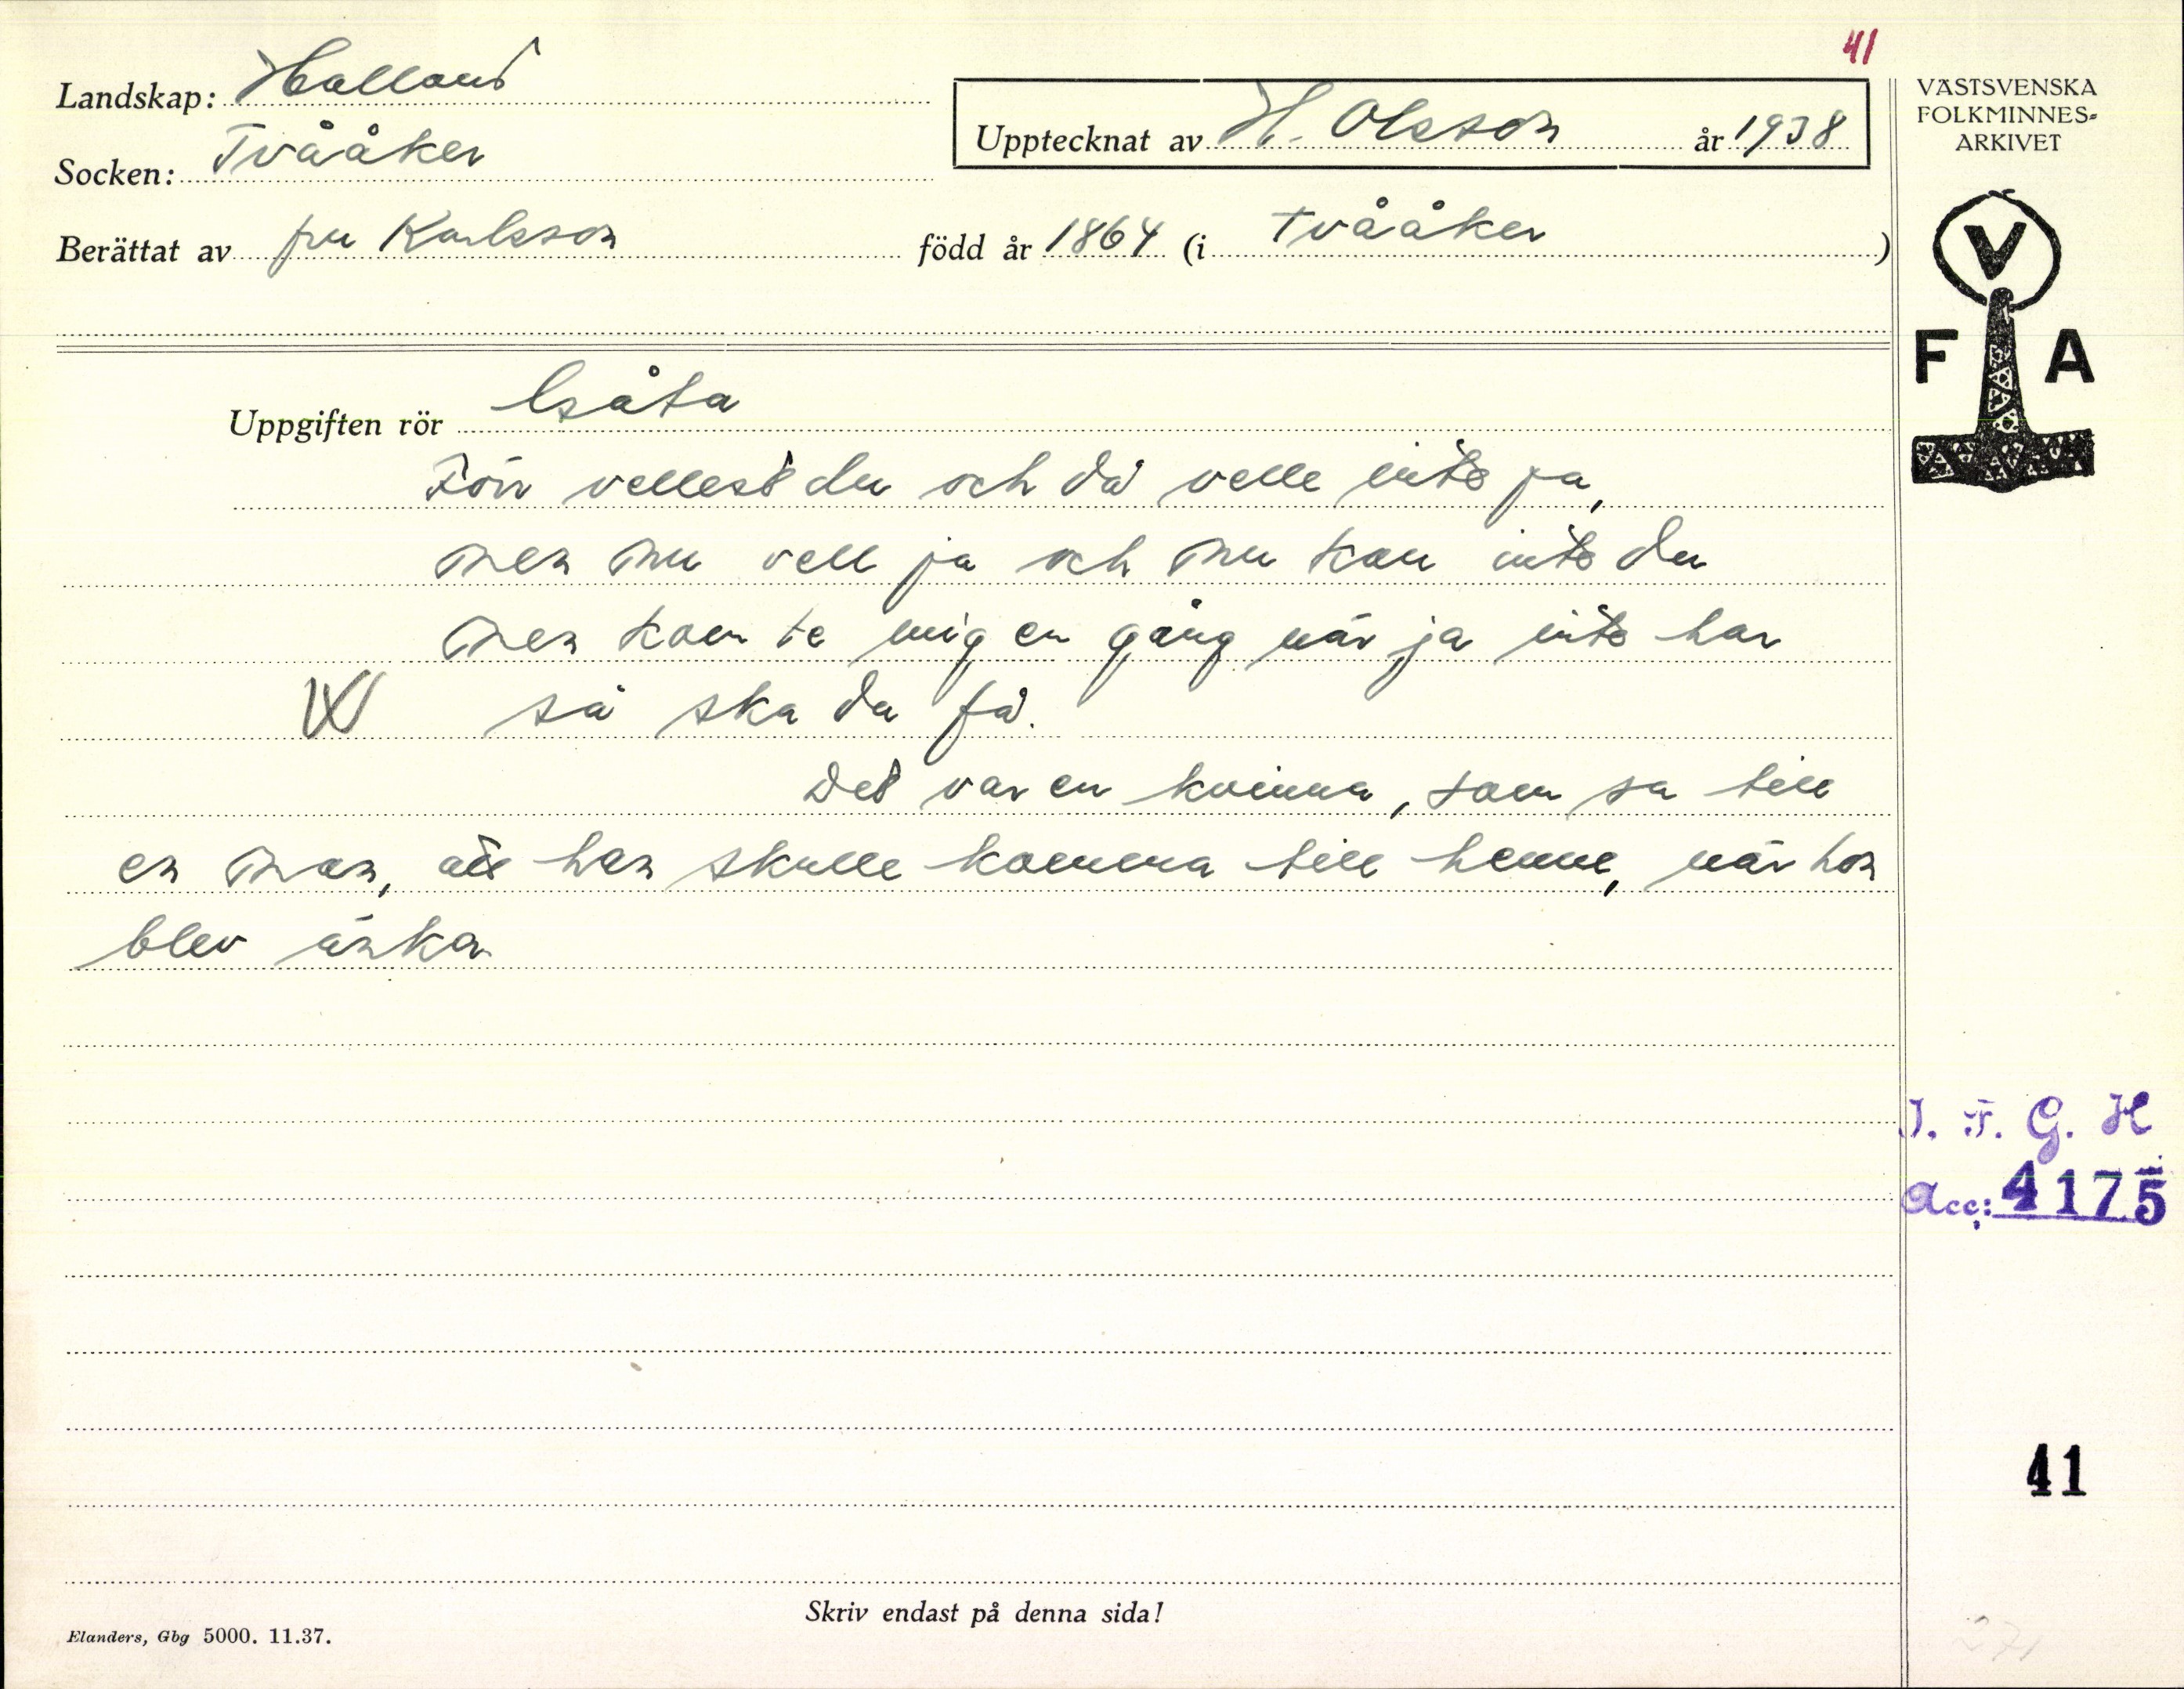 41
Landskap: Halland
Socken: Tvååker
Upptecknat av H. Olsson år 1938
Berättat av fru Karlsson född år 1864 (i Tvååker)
VÄSTSVENSKA
FOLKMINNES-
ARKIVET
V
F A
Uppgiften rör Gåta
Förr vellest du och då velle inte ja,
men nu vell ja och nu kan inte du
men kom te mig en gång när ja inte har
så ska du få.
Det var en kvinna, som sa till
en man, att han skulle komma till henne, när hon
blev änka
I. F. G. H
Acc: 4175
41
Skriv endast på denna sida!
Elanders, Gbg 5000. 11.37.
271